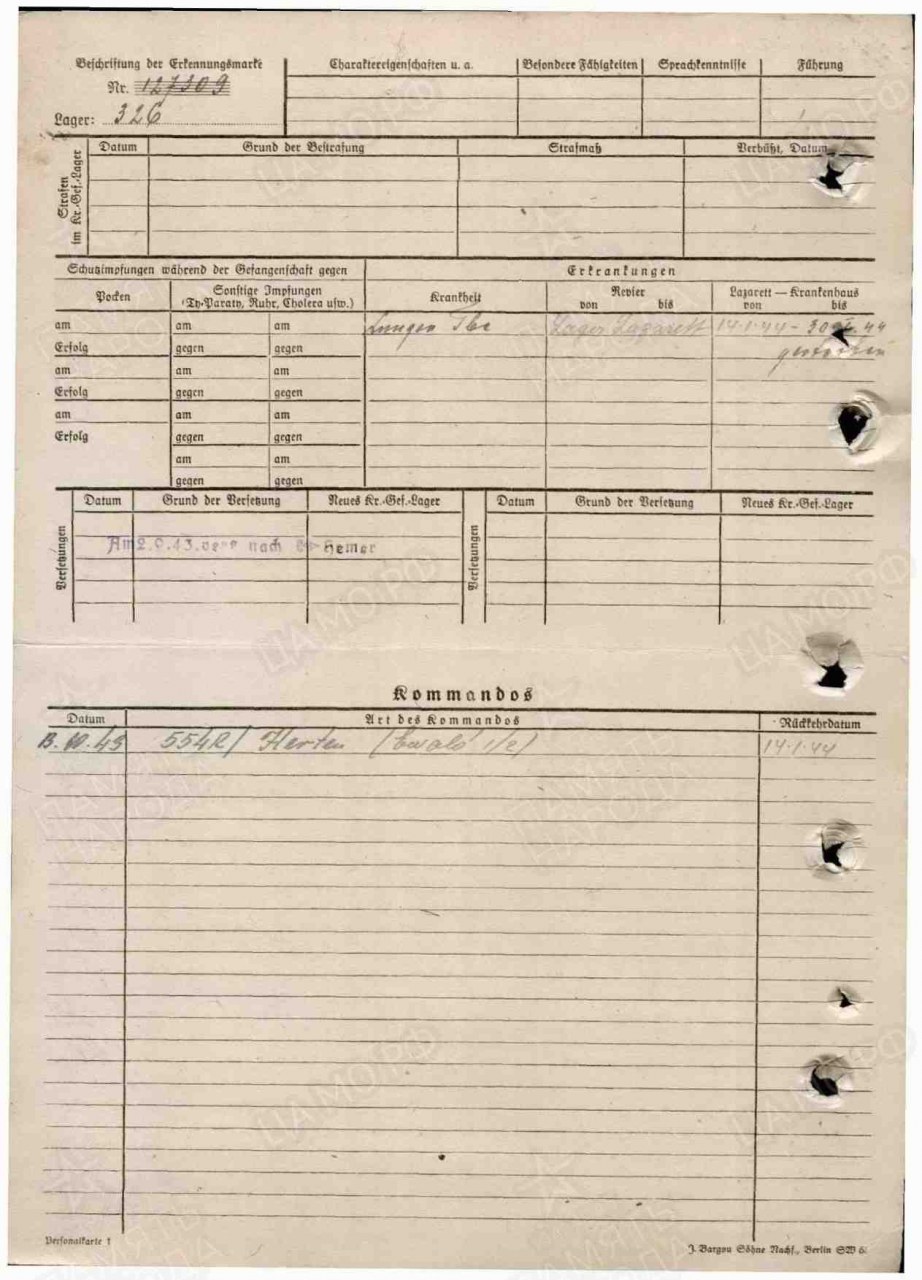 Beschriftung der Erkennungsmarke
Nr. 127309
Lager: 326
Charaktereigenschaften u. a.
Besondere Fähigkeiten
Sprachkenntnisse
Führung
Strafen im Kr.-Gef.-Lager
Datum
Grund der Bestrafung
Strafmaß
Verbüßt, Datum
Schutzimpfungen während der Gefangenschaft gegen
Erkrankungen
Pocken
Sonstige Impfungen
(Ty-Paraty, Ruhr, Cholera usw.)
Krankheit
Revier
von bis
Lazarett — Krankenhaus
von bis
am am am Lungen Tbc Lager Lazarett 14.1.44 - 30. 44
Erfolg gegen gegen gestorben
am am am
Erfolg gegen gegen
am am am
Erfolg gegen gegen
am am
gegen gegen
Versetzungen
Datum Grund der Versetzung Neues Kr.-Gef.-Lager
Versetzungen
Datum Grund der Versetzung Neues Kr.-Gef.-Lager
Am 43 nach Hemer
Kommandos
Datum Art des Kommandos Rückkehrdatum
13.10.43 554R/ Herten (Ewald 1/2) 14.1.44
Personalkarte 1
J. Bargou Söhne Nachf., Berlin SW 6
ЦАМО.РФ
ПАМЯТЬ
НАРОДА